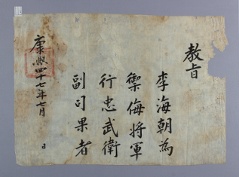 教旨
李海朝為
禦侮將軍
行忠武衛
副司果者
康熙四十七年七月 日